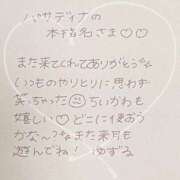 パサディナの
本指名さま♡♡
また来てくれてありがとう
いつものやりとりに思わず
笑っちゃった ちいかわも
嬉しい♡どこに使おう
かなん〜 また来月も
遊んでね! ゆずる